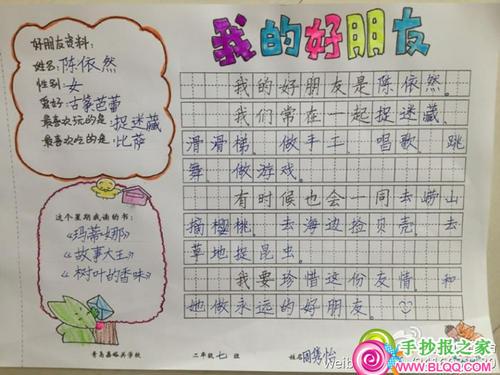 我的好朋友
好朋友资料:
姓名:陈依然
性别:女
爱好:古筝芭蕾
最喜欢玩的是:捉迷藏
最喜欢吃的是:比萨
这个星期我读的书:
《玛蒂娜》
《故事大王》
《树叶的香味》
我的好朋友是陈依然。
我们常在一起捉迷藏、
滑滑梯、做手工、唱歌、跳
舞、做游戏。
有时候也会一同去崂山
摘樱桃、去海边捡贝壳、去
草地捉昆虫。
我要珍惜这份友情,和
她做永远的好朋友。
青岛嘉峪关学校
二年级 七 班
姓名
手抄报之家
WWW.BLQQ.COM